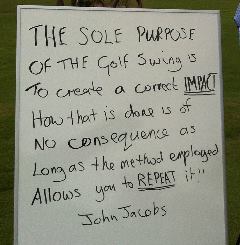 THE SOLE PURPOSE
OF THE Golf Swing is
To create a correct IMPACT
How that is done is of
NO consequence as
Long as the method employed
Allows you to REPEAT it!!
John Jacobs